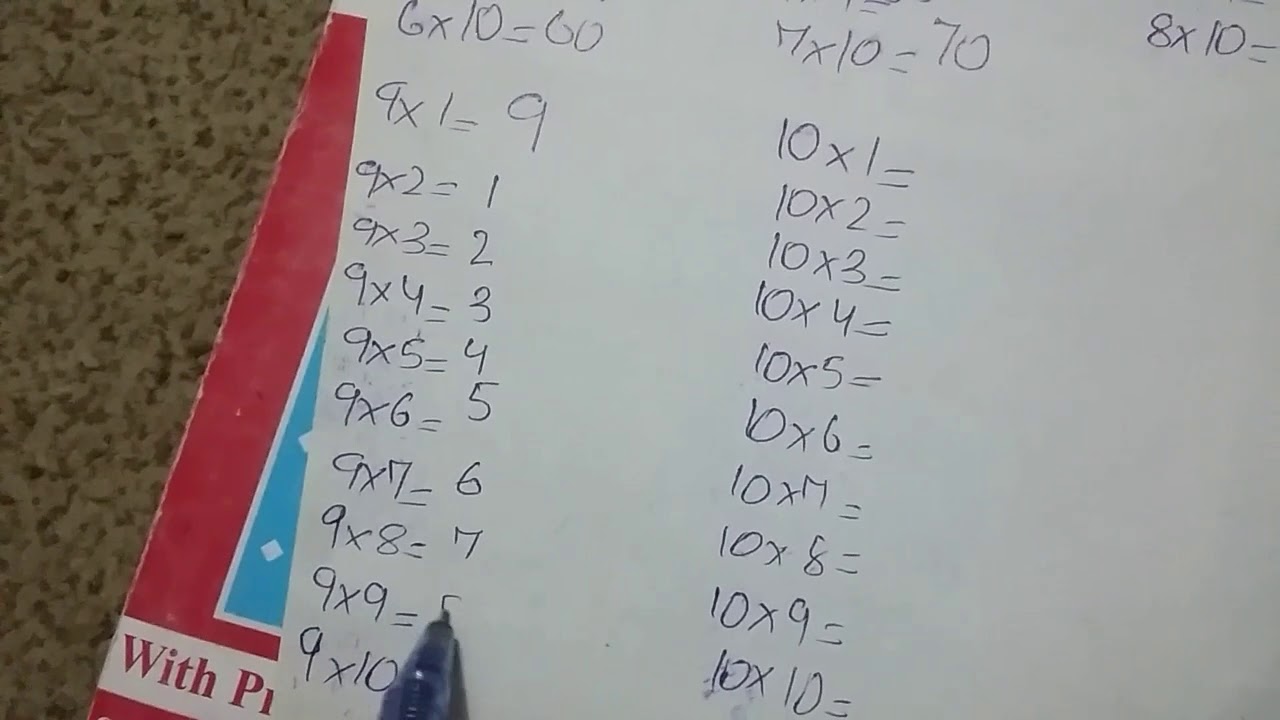 6x10=60
7x10=70
8x10=
9x1=9
9x2=1
9x3=2
9x4=3
9x5=4
9x6=5
9x7=6
9x8=7
9x9=
9x10
10x1=
10x2=
10x3=
10x4=
10x5=
10x6=
10x7=
10x8=
10x9=
10x10=
With